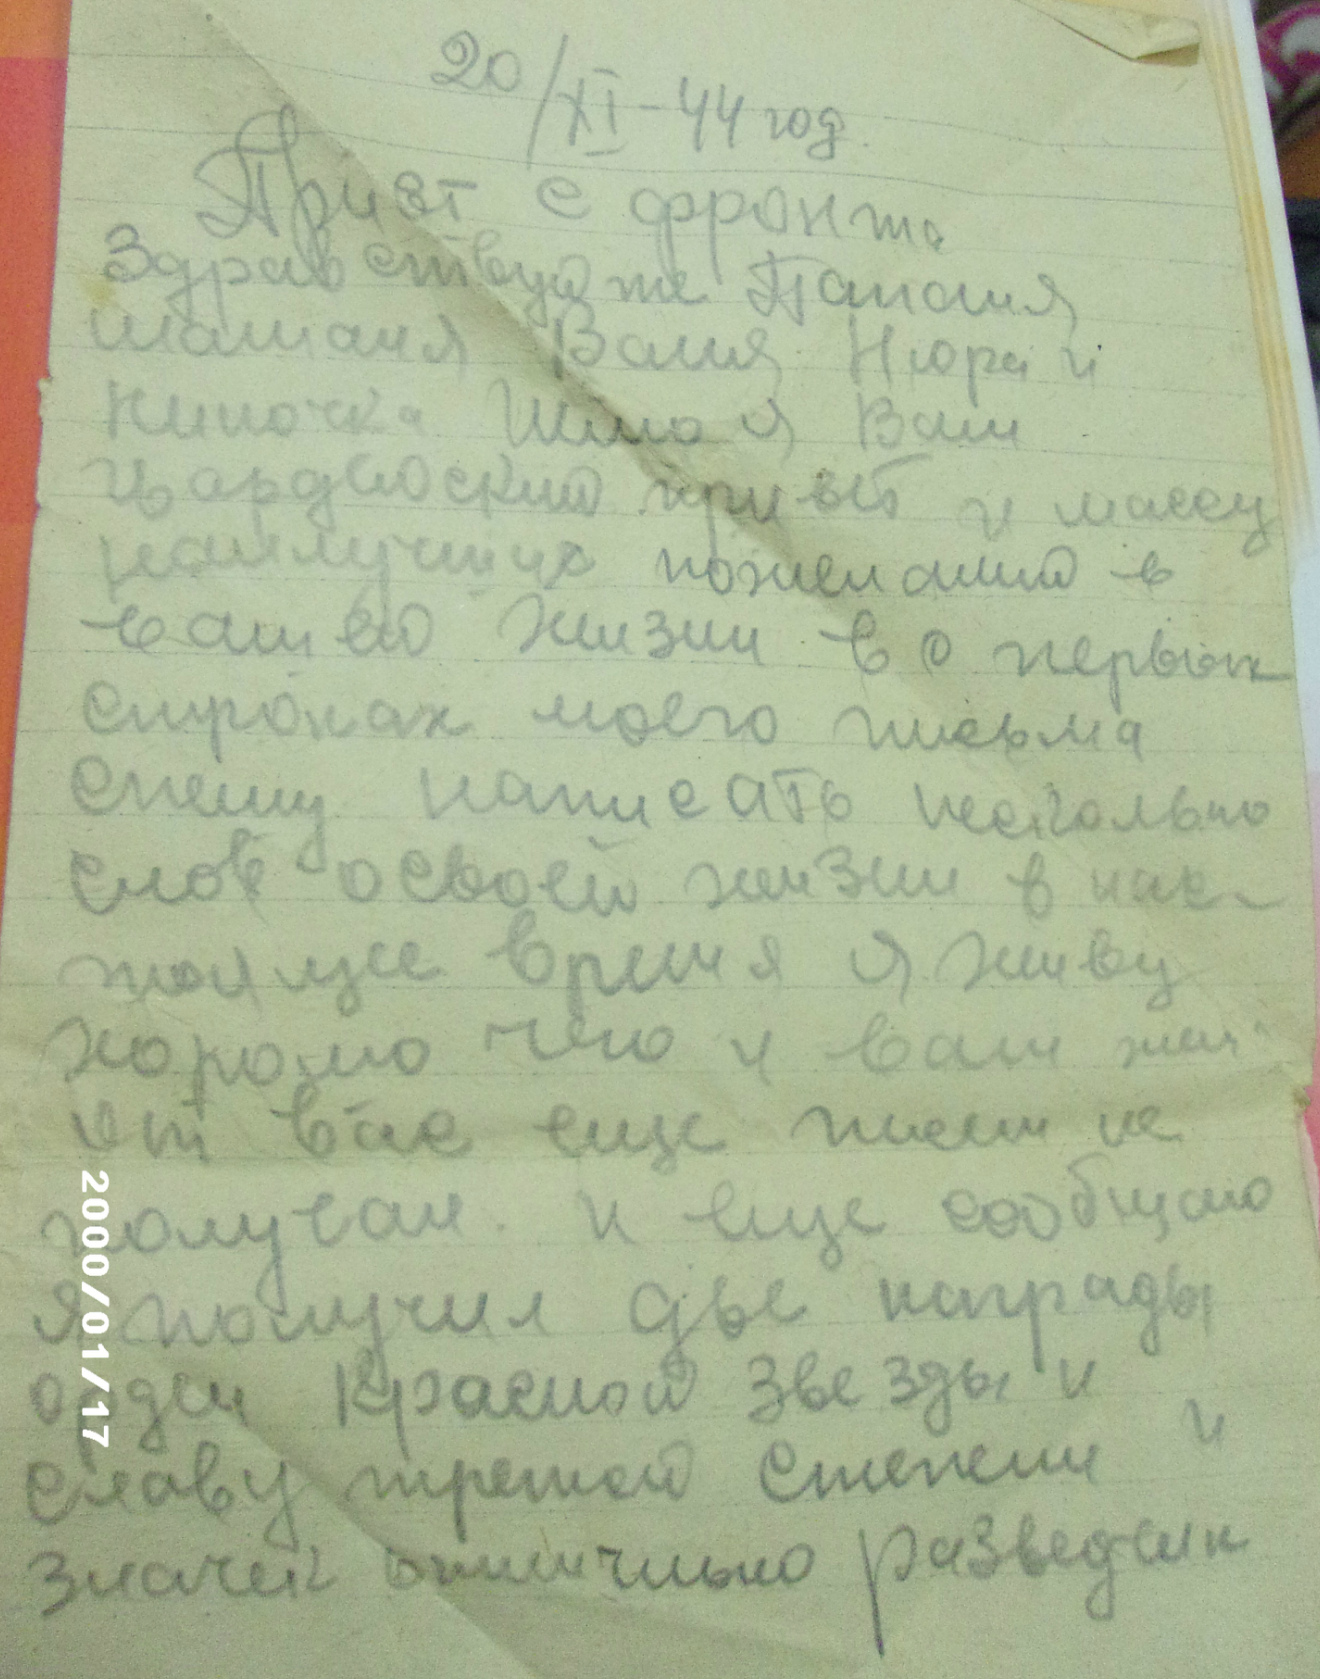 20/XI-44 год.
Привт с фронта
Здравствуйте Папаня
маманя Ваня Нюра и
Ниночка Шлю я Вам
гвардейский привет и массу
наилучших пожеланий в
вашей жизни во первых
строках моего письма
спешу написать несколько
слов о своей жизни в нас-
тоящее время я живу
хорошо чего и вам
от вас еще писем не
получал. и еще сообщаю
я получил две награды
орден Красной Звезды и
славу третей степени и
значек отлично разведчик
2000/01/17